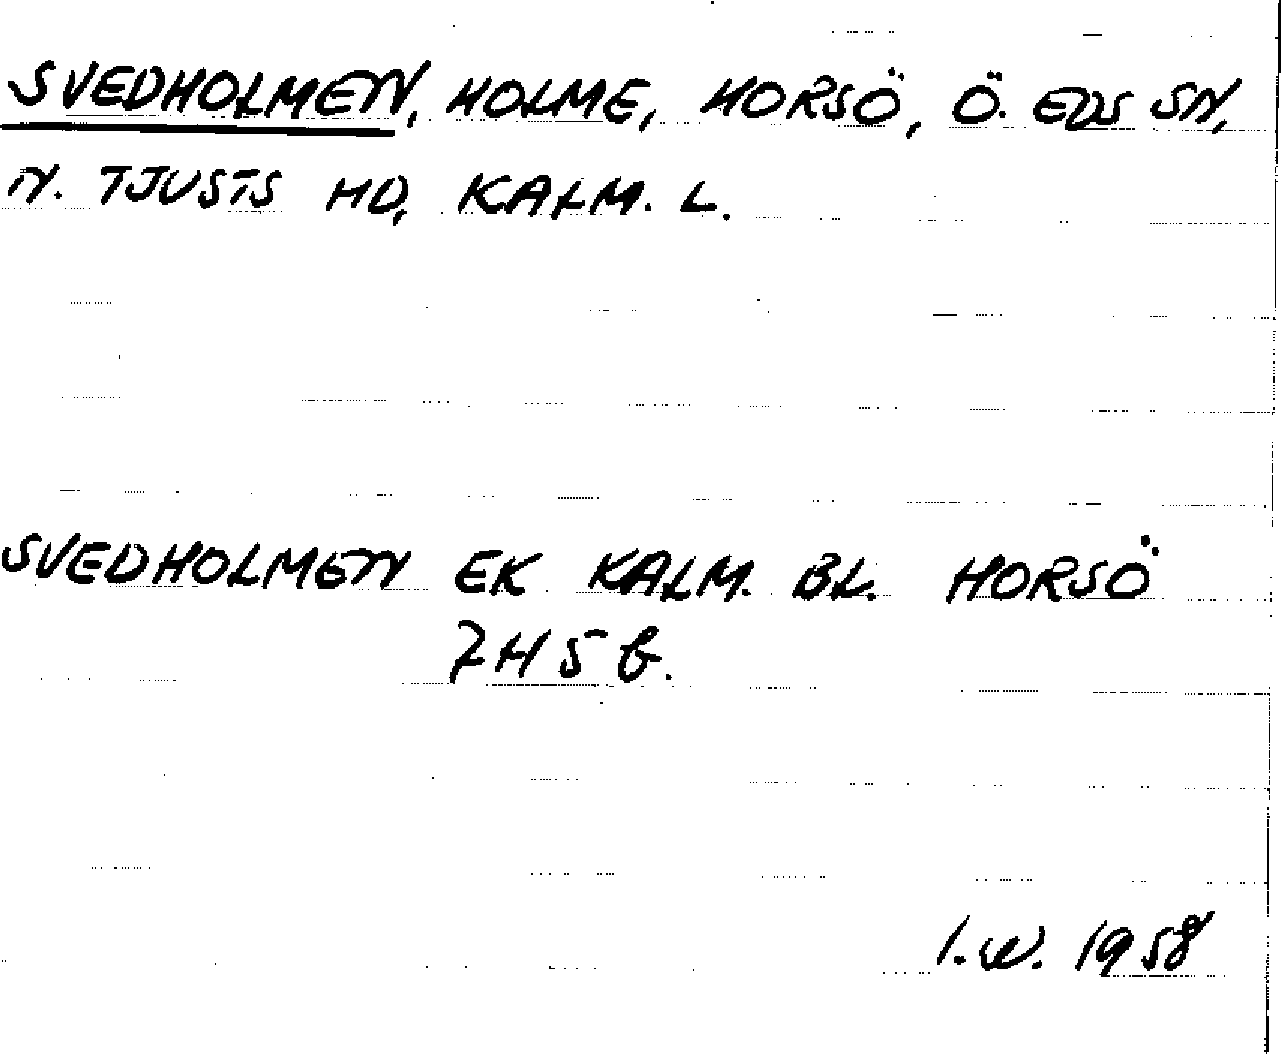 SVEDHOLMEN, HOLME, HORSÖ, Ö. EDS SN,
N. TJUSTS HD, KALM. L.
SVEDHOLMEN EK KALM. BL. HORSÖ
7H5b.
I.W. 1958